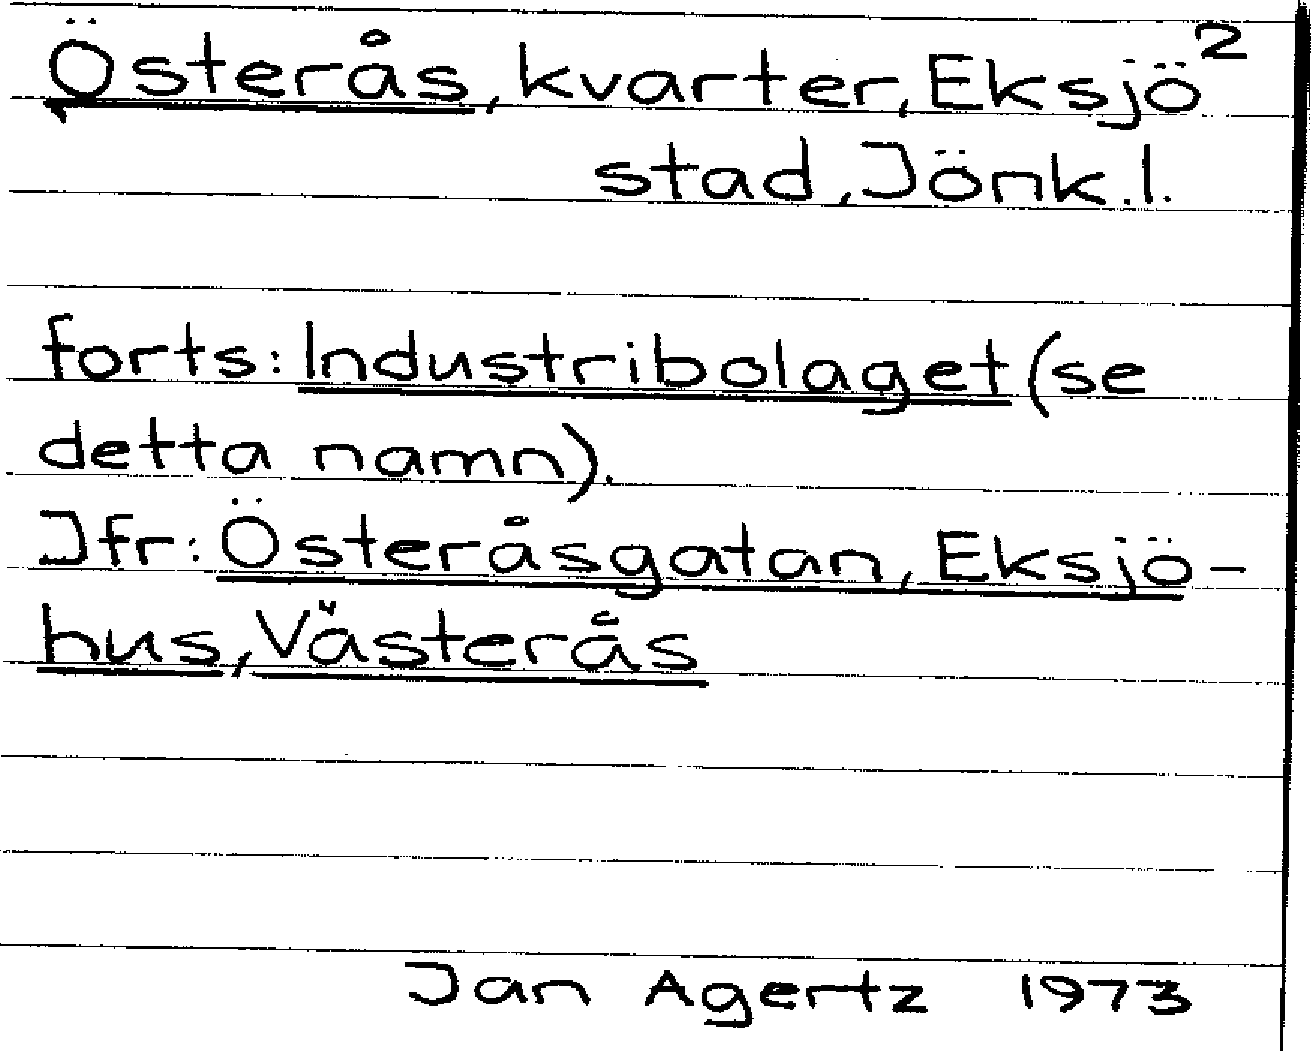 Österås, kvarter, Eksjö 2
stad, Jönk.l.
forts: Industribolaget (se
detta namn).
Jfr: Österåsgatan, Eksjö-
hus, Västerås
Jan Agertz 1973